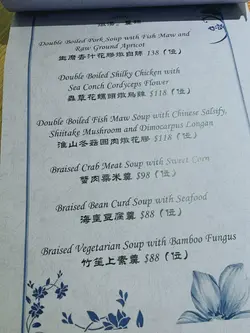 Double Boiled Pork Soup with Fish Maw and
Raw Ground Apricot
138 (位)
Double Boiled Shilky Chicken with
Sea Conch Cordyceps Flower
蟲草花螺頭燉烏雞 $118 (位)
Double Boiled Fish Maw Soup with Chinese Salsify,
Shiitake Mushroom and Dimocarpus Langan
淮山冬菇圓肉燉花膠 $118 (位)
Braised Crab Meat Soup with Sweet Corn
蟹肉粟米羹 $98 (位)
Braised Bean Curd Soup with Seafood
海皇豆腐羹 $88 (位)
Braised Vegetarian Soup with Bamboo Fungus
竹笙上素羹 $88 (位)